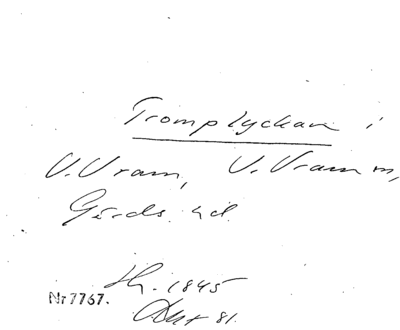 Tromplyckan i
V. Vram, V. Vram m,
Gärds hd.
Sk. 1845
Nr 7767.
81.